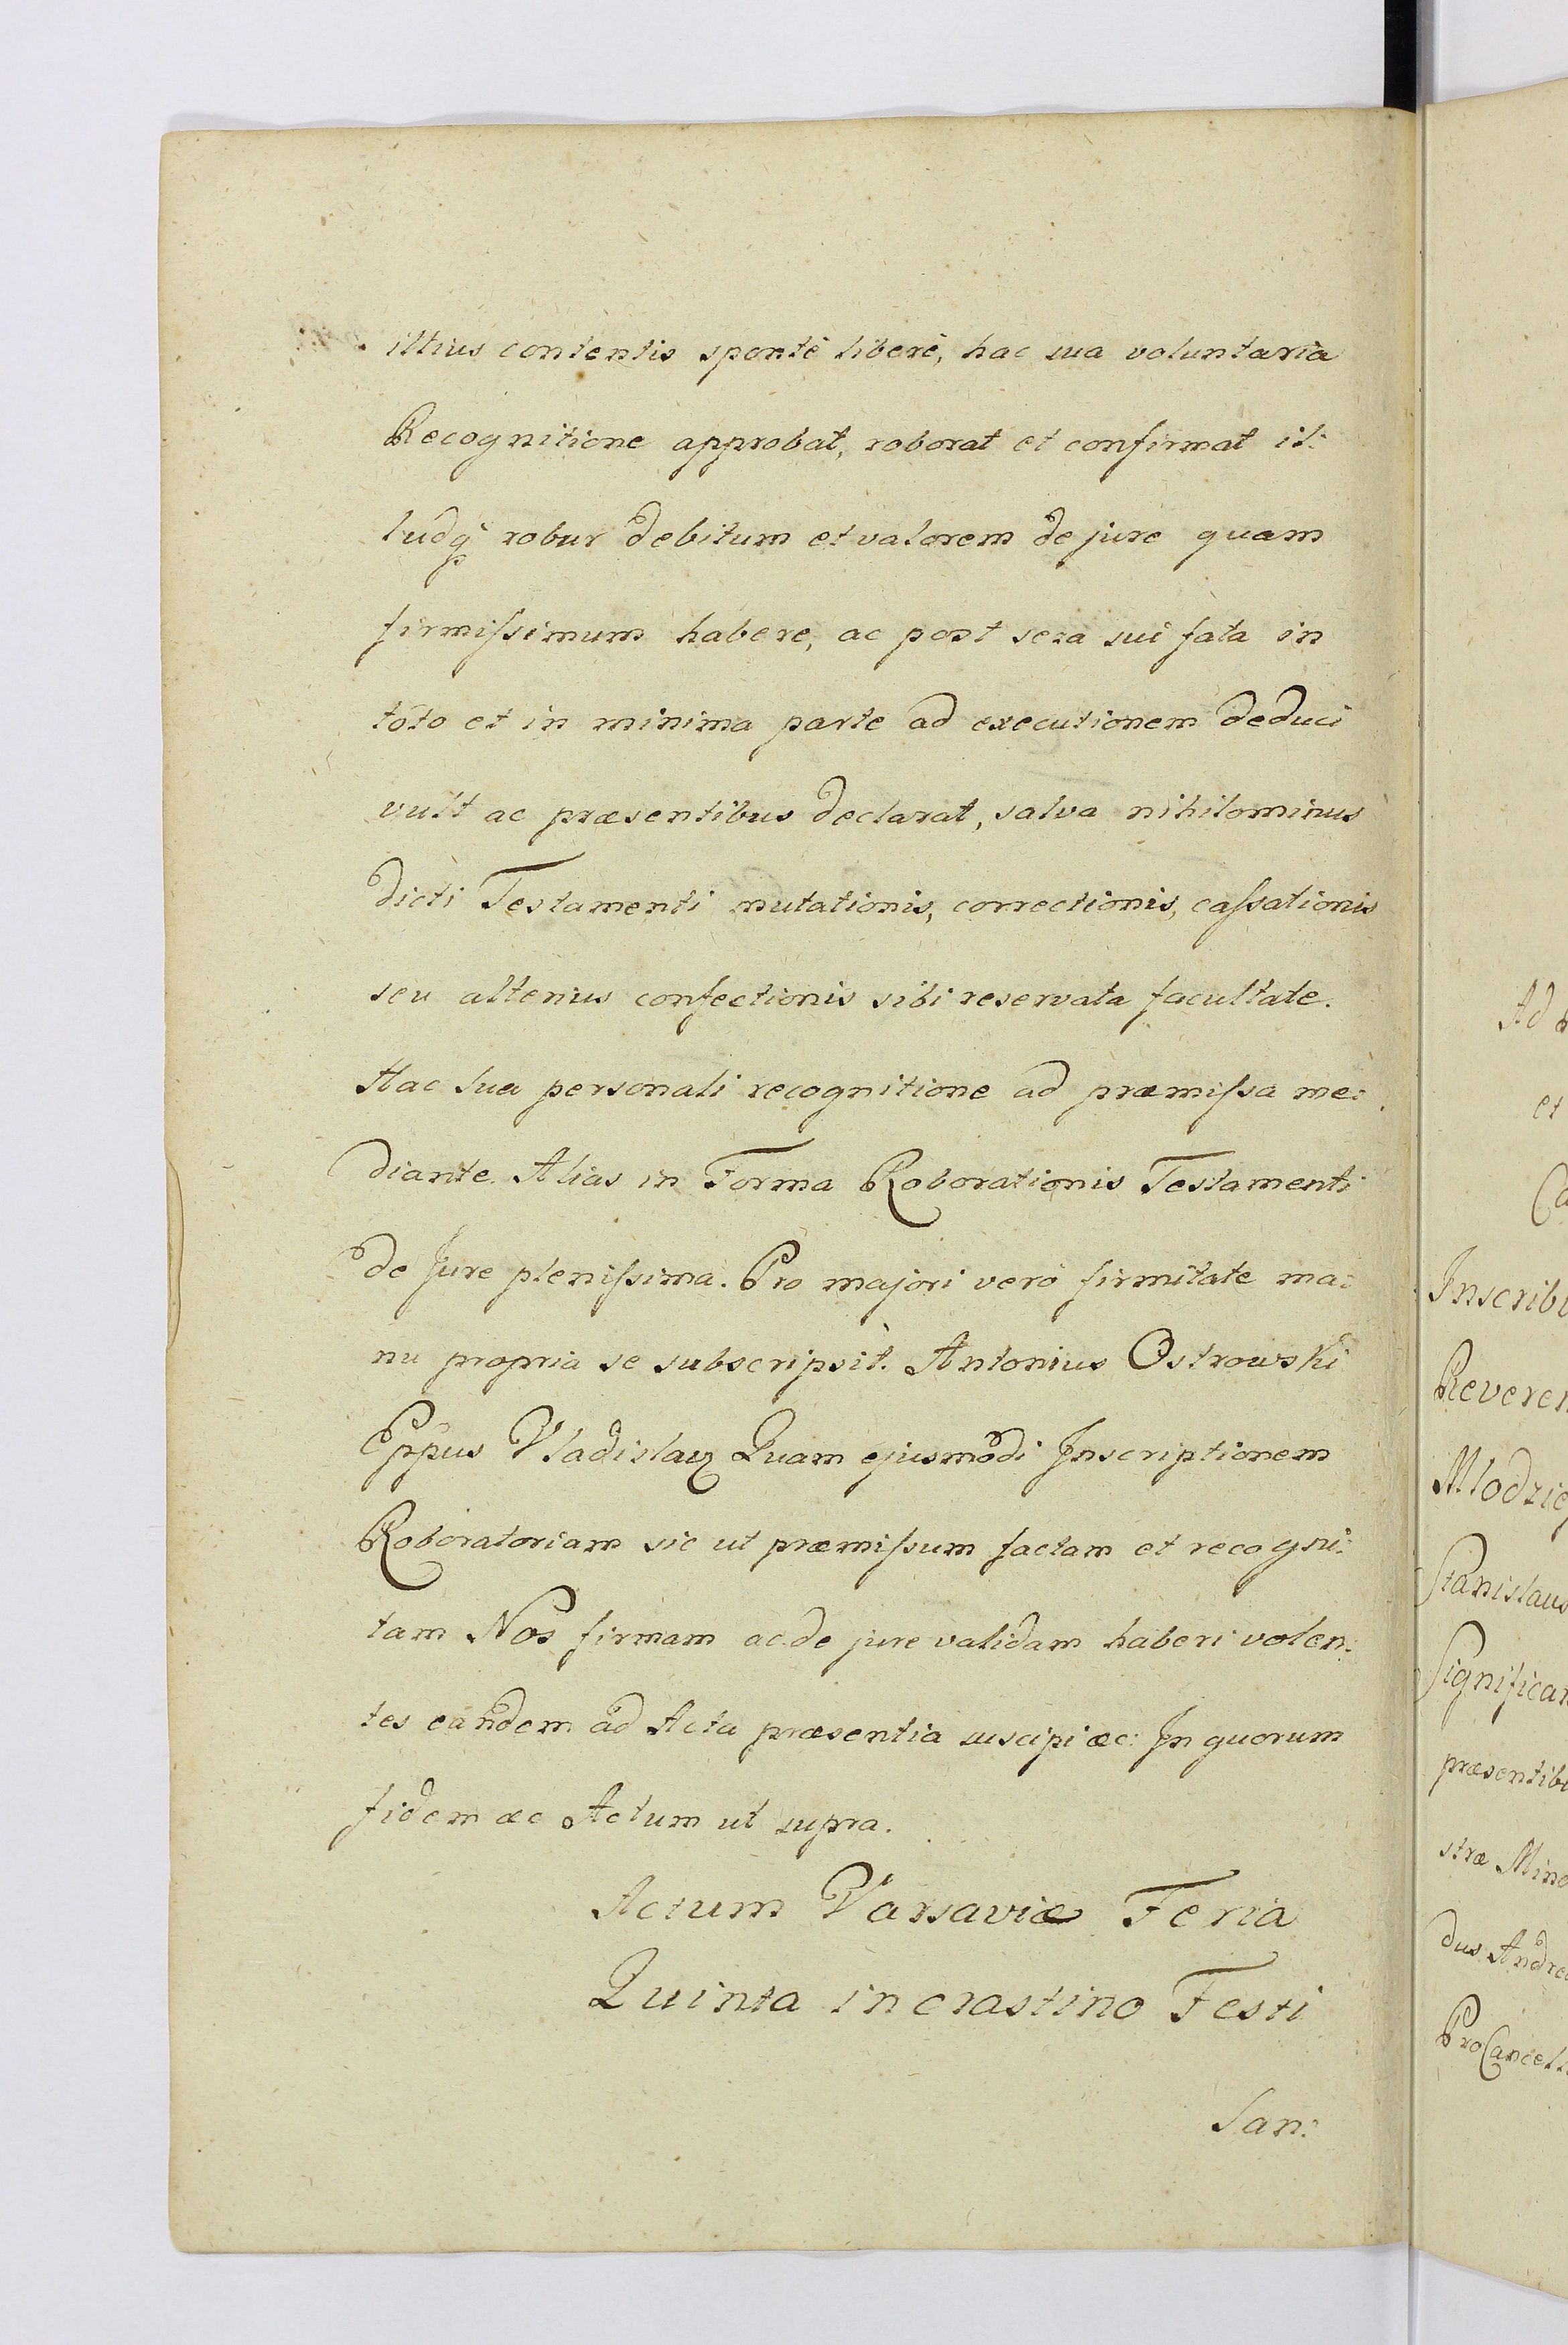 illius contentis spontè liberè, hac sua voluntaria
Recognitione approbat, roborat et confirmat il:
ludq robur debitum et valorem de jure quam
firmiſsimum habere, ac post sera sui fata in
toto et in minima parte ad executionem deduci
vult ac præsentibus declarat, salva nihilominus
dicti Testamenti mutationis, correctionis, caſsationis
seu alterius confectionis sibi reservata facultate.
Hac sua personali recognitione ad præmiſsa me:
diante. Alias in Forma Roborationis Testamenti
de Jure pleniſsima. Pro majori verò firmitate ma:
nu propria se subscripsit. Antonius Ostrowski
Eppus Vladislau Quam ejusmodi Inscriptionem
Roboratoriam sic ut præmiſsum factam et recogni:
tam Nos firmam ac de jure validam haberi volen:
tes eandem ad Acta præsentia suscipi æc: In quorum
fidem æc Actum ut supra.
Actum Varsaviæ Feria
Quinta in crastino Festi
San:
Ad
et
Ca
Inscribi
Reveren
Mlodzie
Stanislaus
Significam
præsentibu
stræ Mino
dus Andre
ProCancell